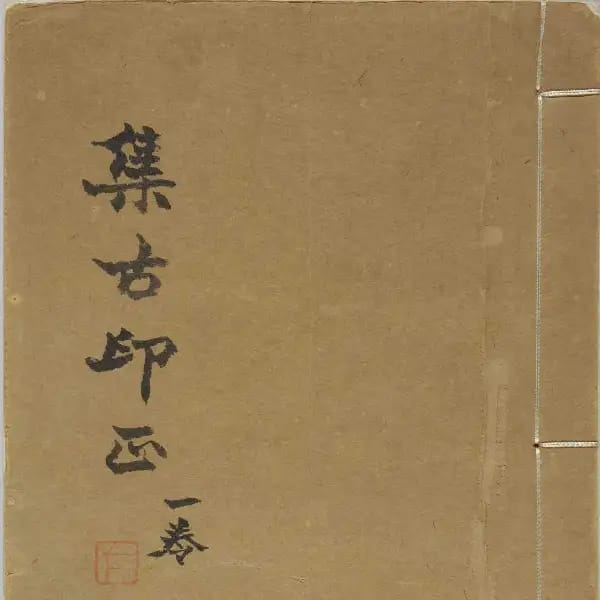 集古印正
一卷